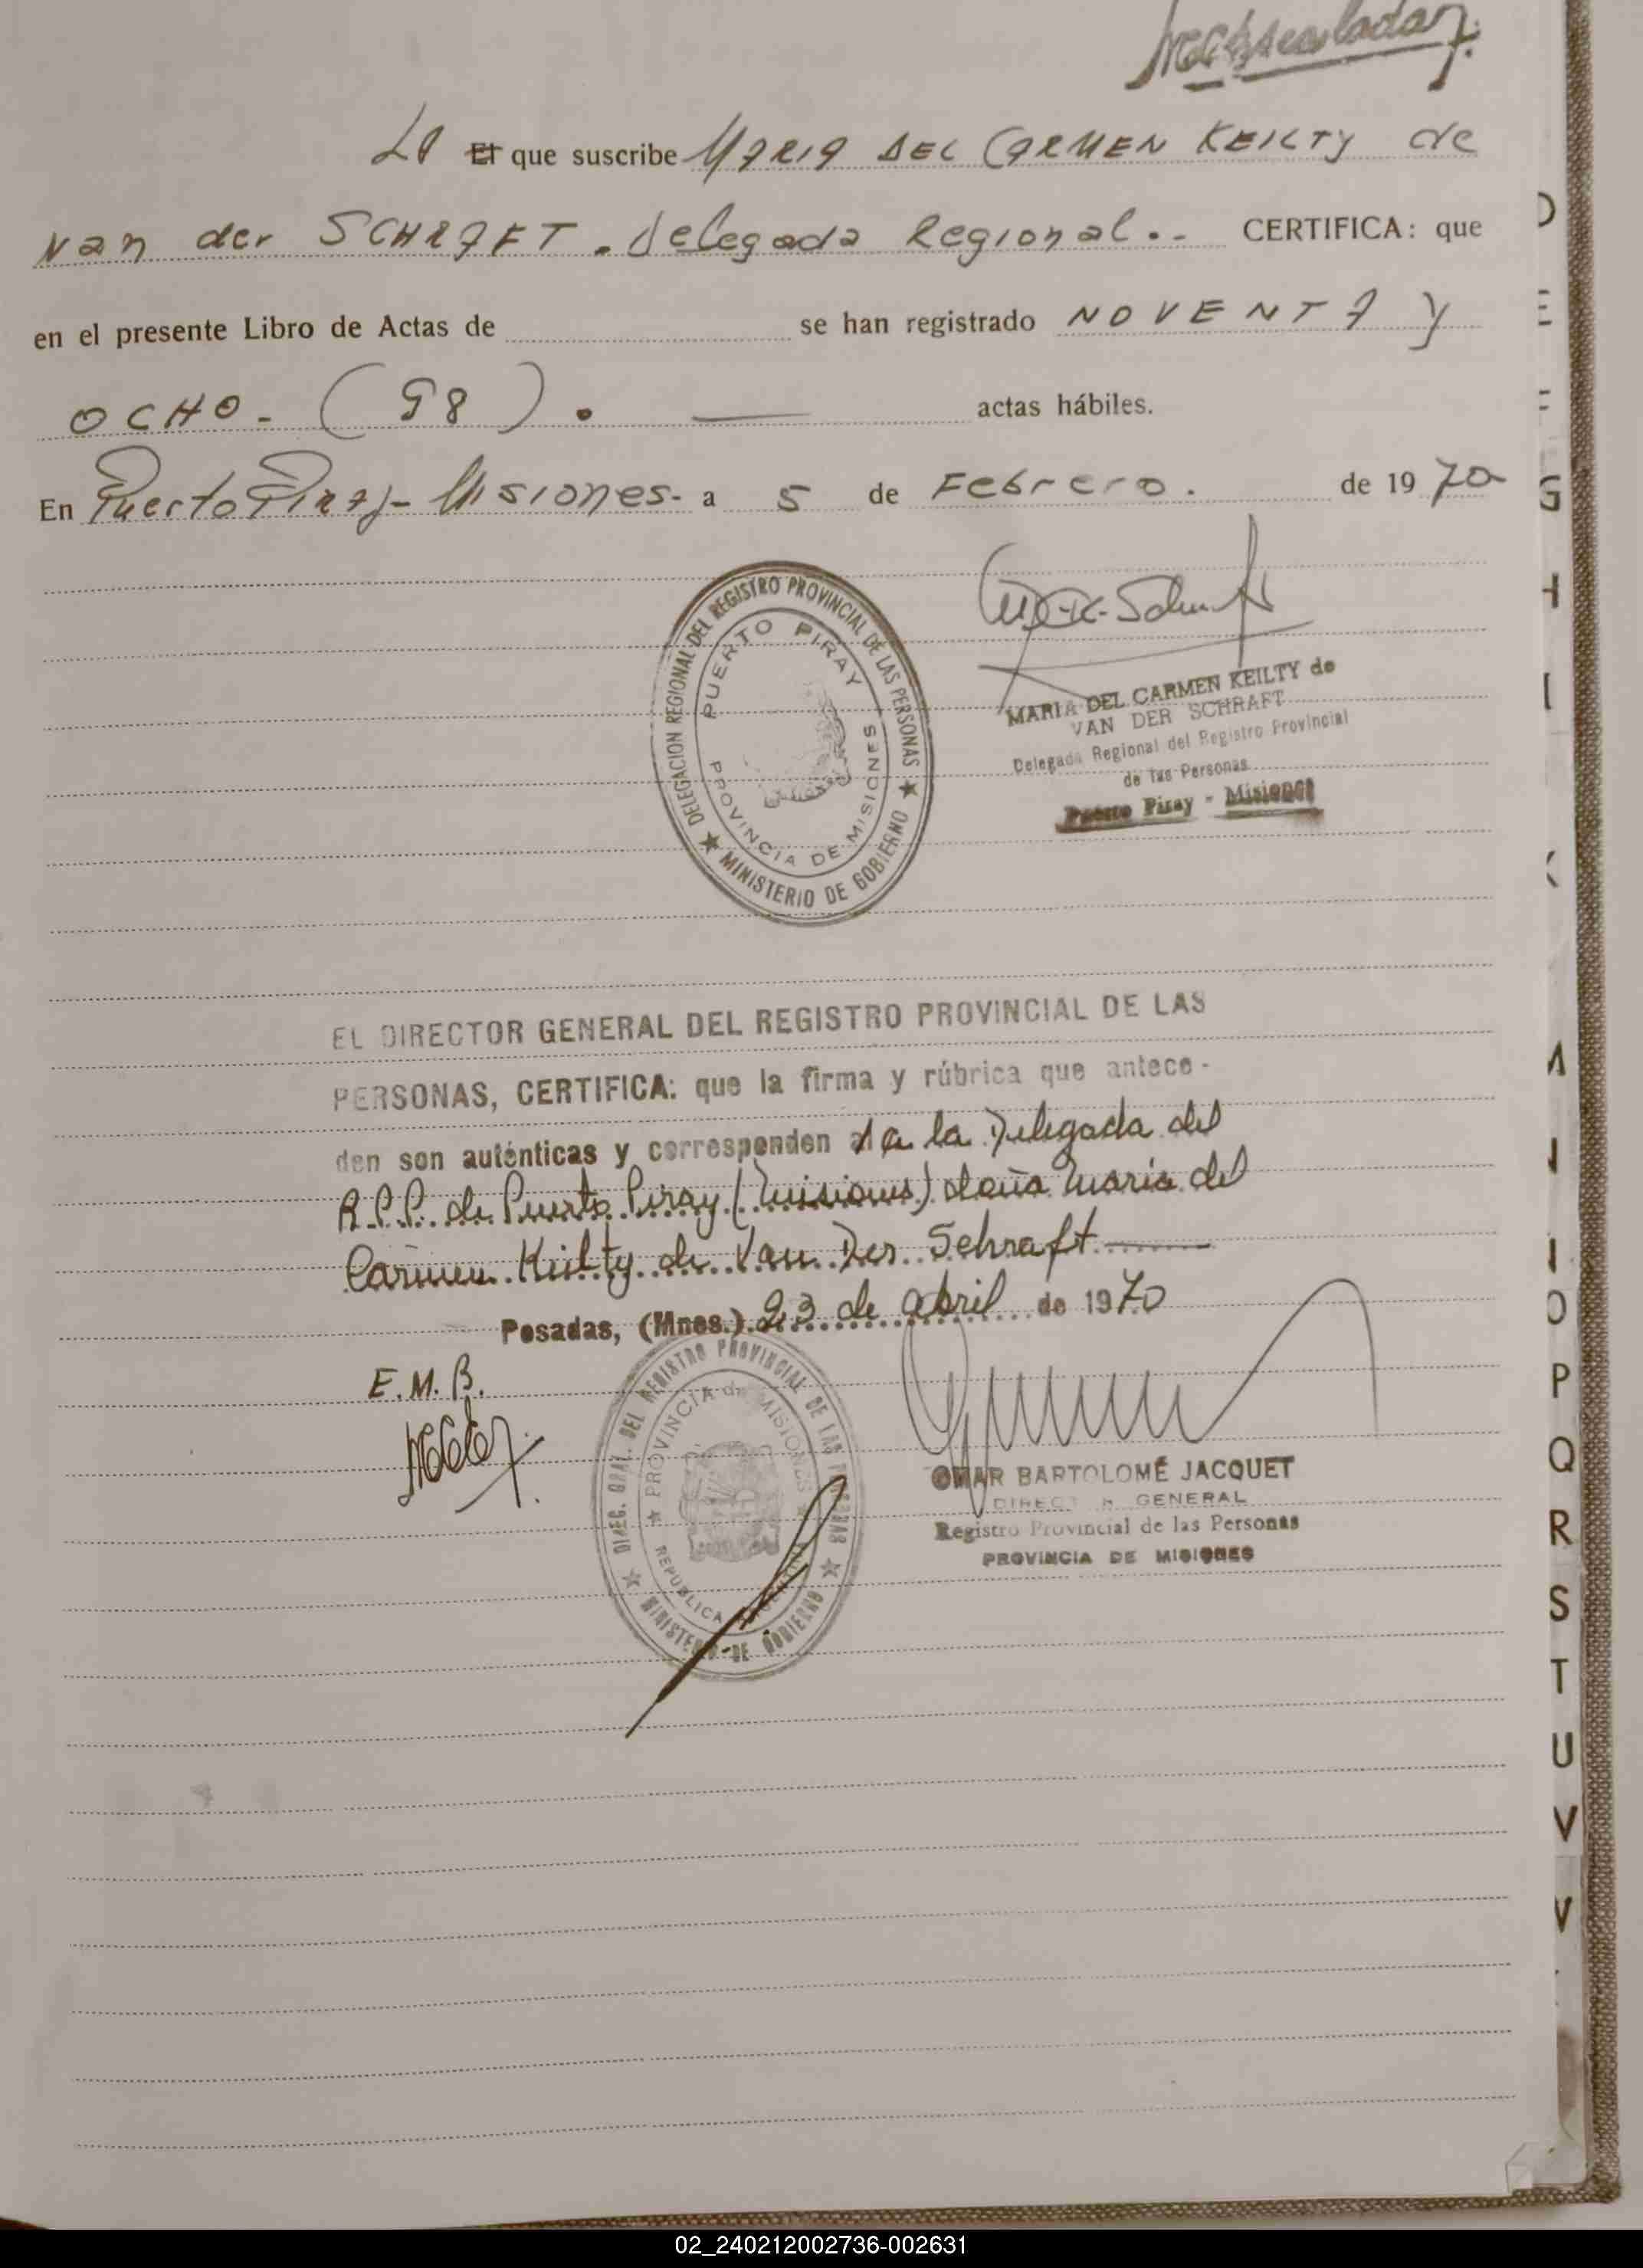 La El que suscribe MARIA DEL CARMEN KEILTY de
van der SCHRAFT. delegada Regional.- CERTIFICA: que
en el presente Libro de Actas de se han registrado NOVENTA Y
OCHO.- (98). actas hábiles.
En Puerto Piray- Misiones- a 5 de Febrero. de 1970
DELEGACION REGIONAL DEL REGISTRO PROVINCIAL DE LAS PERSONAS
MINISTERIO DE GOBIERNO
PUERTO PIRAY
PROVINCIA DE MISIONES
MARIA DEL CARMEN KEILTY de
VAN DER SCHRAFT
Delegada Regional del Registro Provincial
de las Personas
Puerto Piray - Misiones
EL DIRECTOR GENERAL DEL REGISTRO PROVINCIAL DE LAS
PERSONAS, CERTIFICA: que la firma y rúbrica que antece-
den son auténticas y corresponden a la Delegada del
R.P.P. de Puerto Piray (Misiones) doña María del
Carmen Keilty de Van Der Schraft
Posadas, (Mnes.) 23 de abril de 1970
E.M.B.
DIREC. GRAL. DEL REGISTRO PROVINCIAL DE LAS PERSONAS
MINISTERIO DE GOBIERNO
PROVINCIA de MISIONES
REPUBLICA ARGENTINA
OMAR BARTOLOMÉ JACQUET
DIRECTOR GENERAL
Registro Provincial de las Personas
PROVINCIA DE MISIONES
D
E
F
G
H
I
K
M
O
P
Q
R
S
T
U
V
02_240212002736-002631